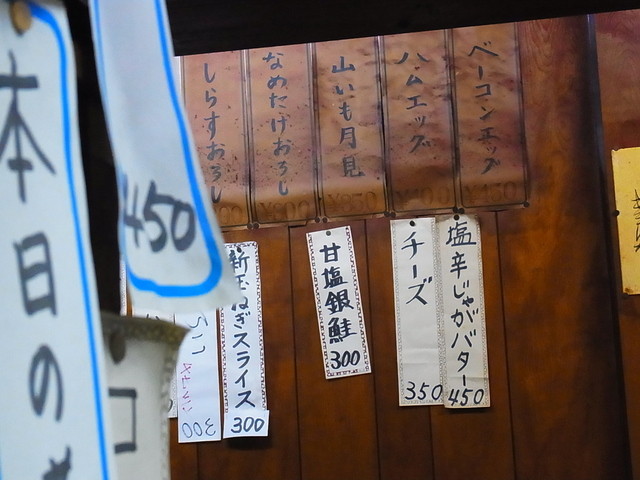 ベーコンエッグ
¥450
ハムエッグ
¥400
山いも月見
¥350
なめたけおろし
¥300
しらすおろし
塩辛じゃがバター
450
チーズ
350
甘塩銀鮭
300
新玉ねぎスライス
300
300
450
本日の
コ